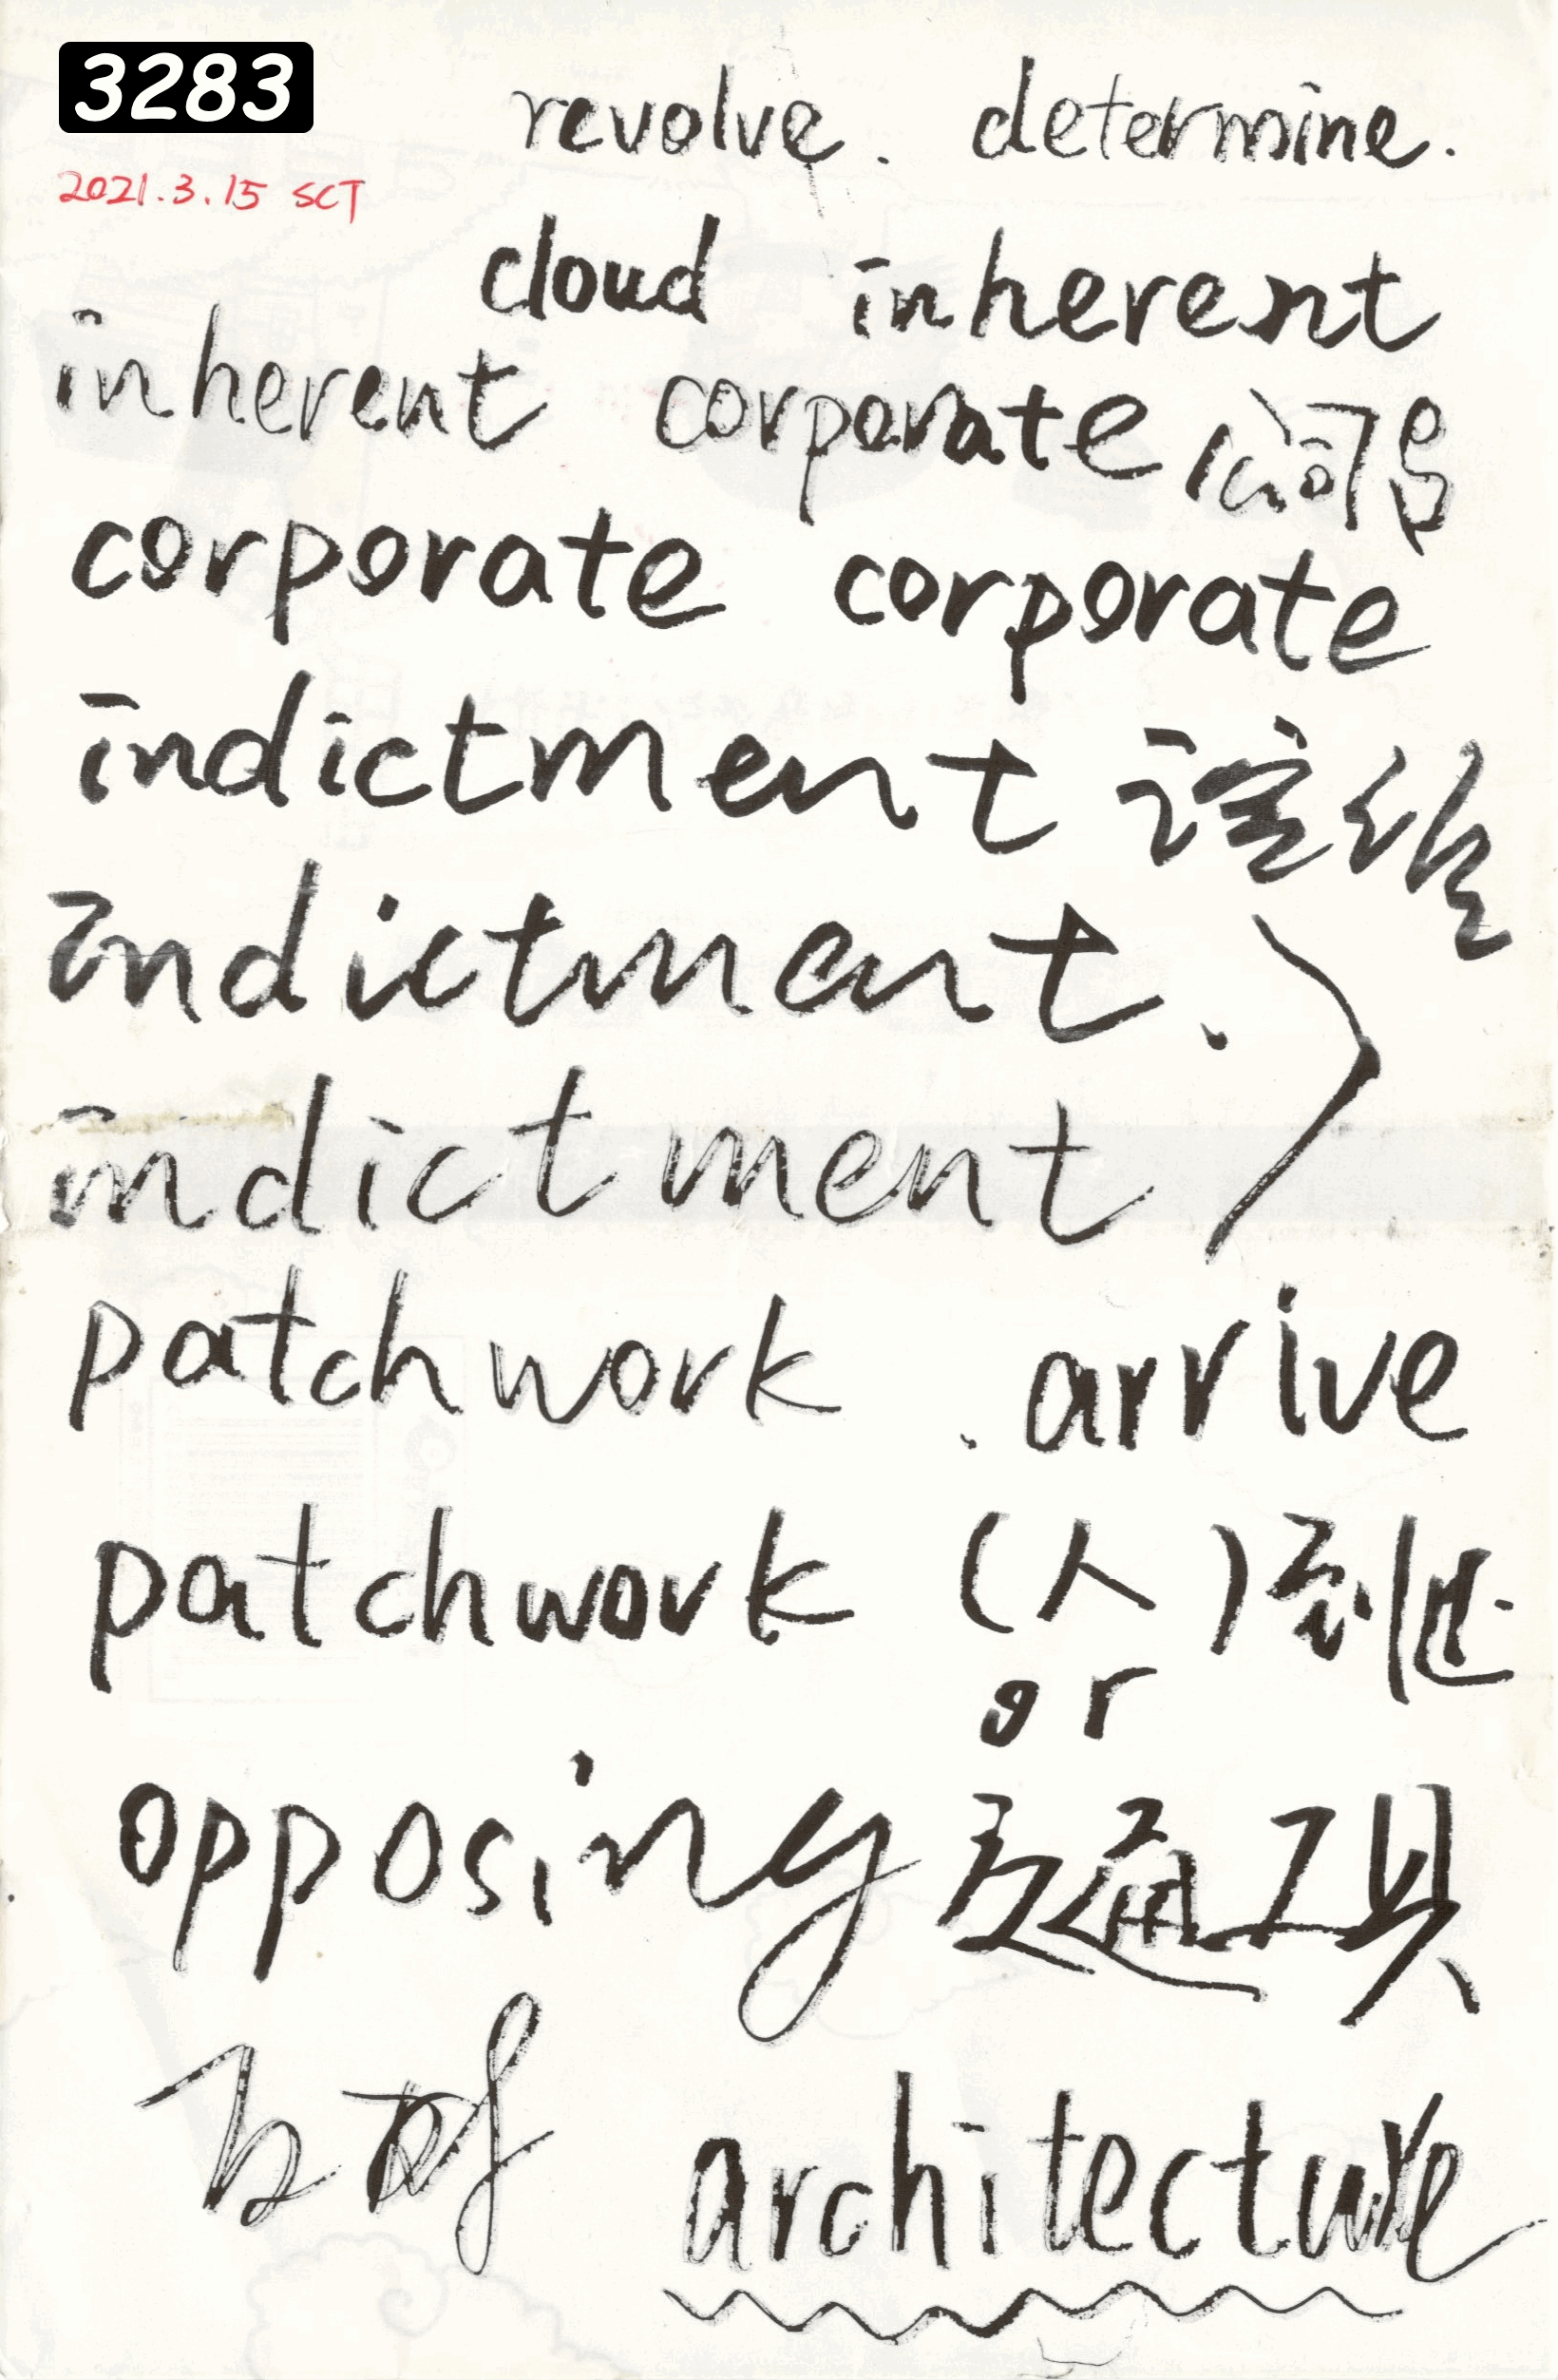 3283
revolve. determine.
2021.3.15 SCT
cloud inherent
inherent corporate
corporate corporate
indictment
indictment.
indictment
patchwork . arrive
patchwork (人)到达
or
opposing 交通工具
architecture